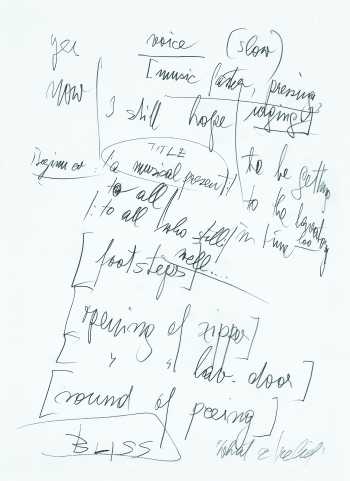 yes voice (slow)
now [music faster, pressing
I still hope urging]
TITLE
Beginner: (a musical present)
to be getting
to all
to the lavatory
: to all who still in time too
[footsteps] well...
[opening of zipper]
" " lav. door]
[sound of peeing]
BLISS "what a relief"